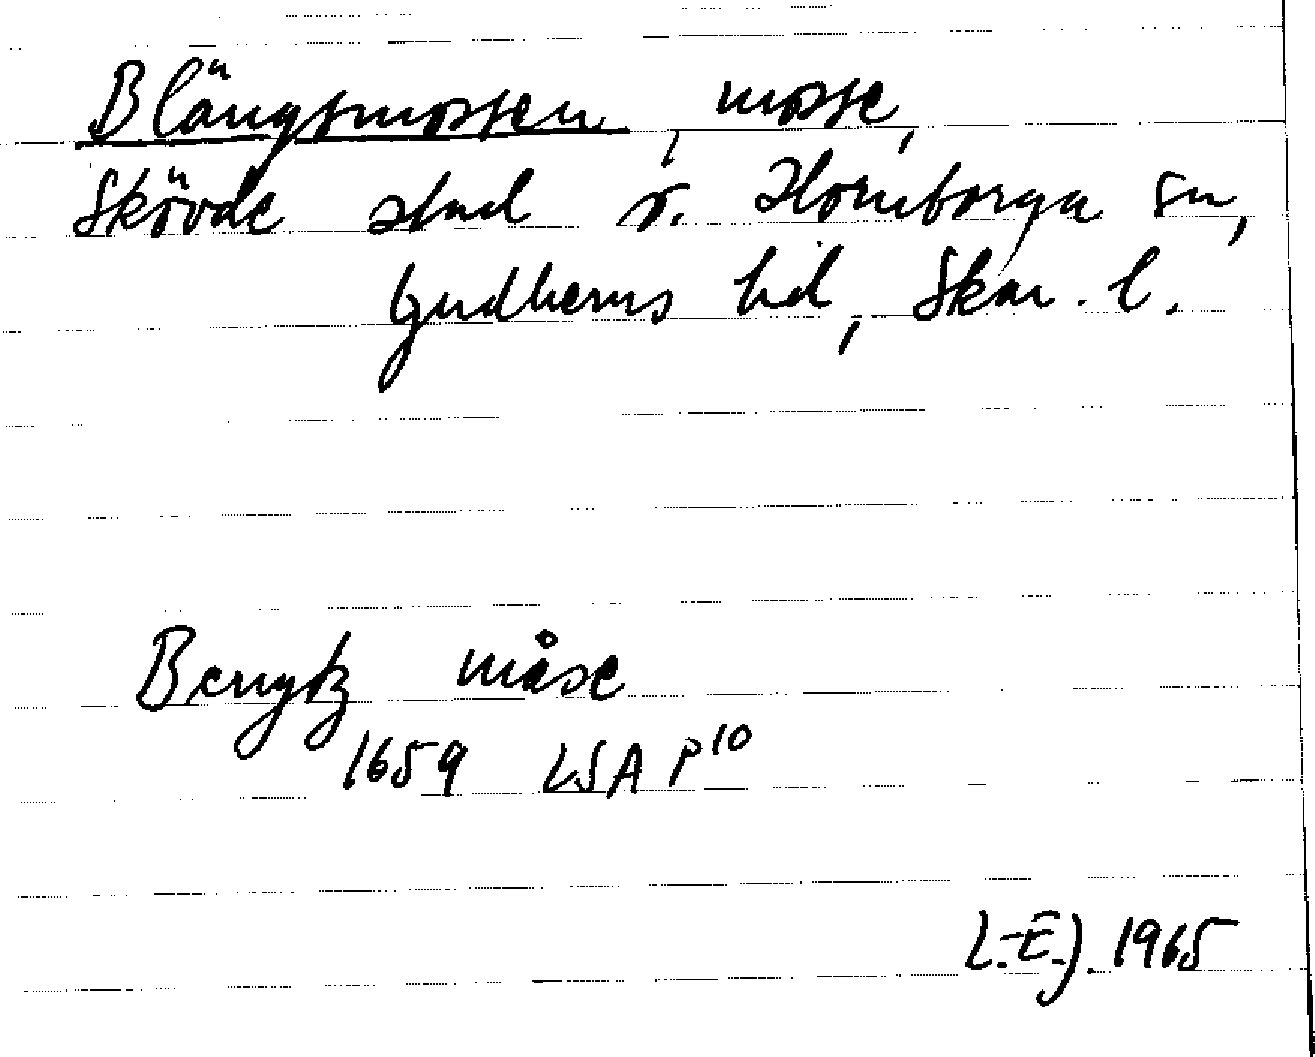 Blängsmossen, mosse,
Skövde stad o. Hornborga sn,
Gudhems hd, Skar. l.
Bengtz måse
1659 LSA P 10
L-EJ. 1965